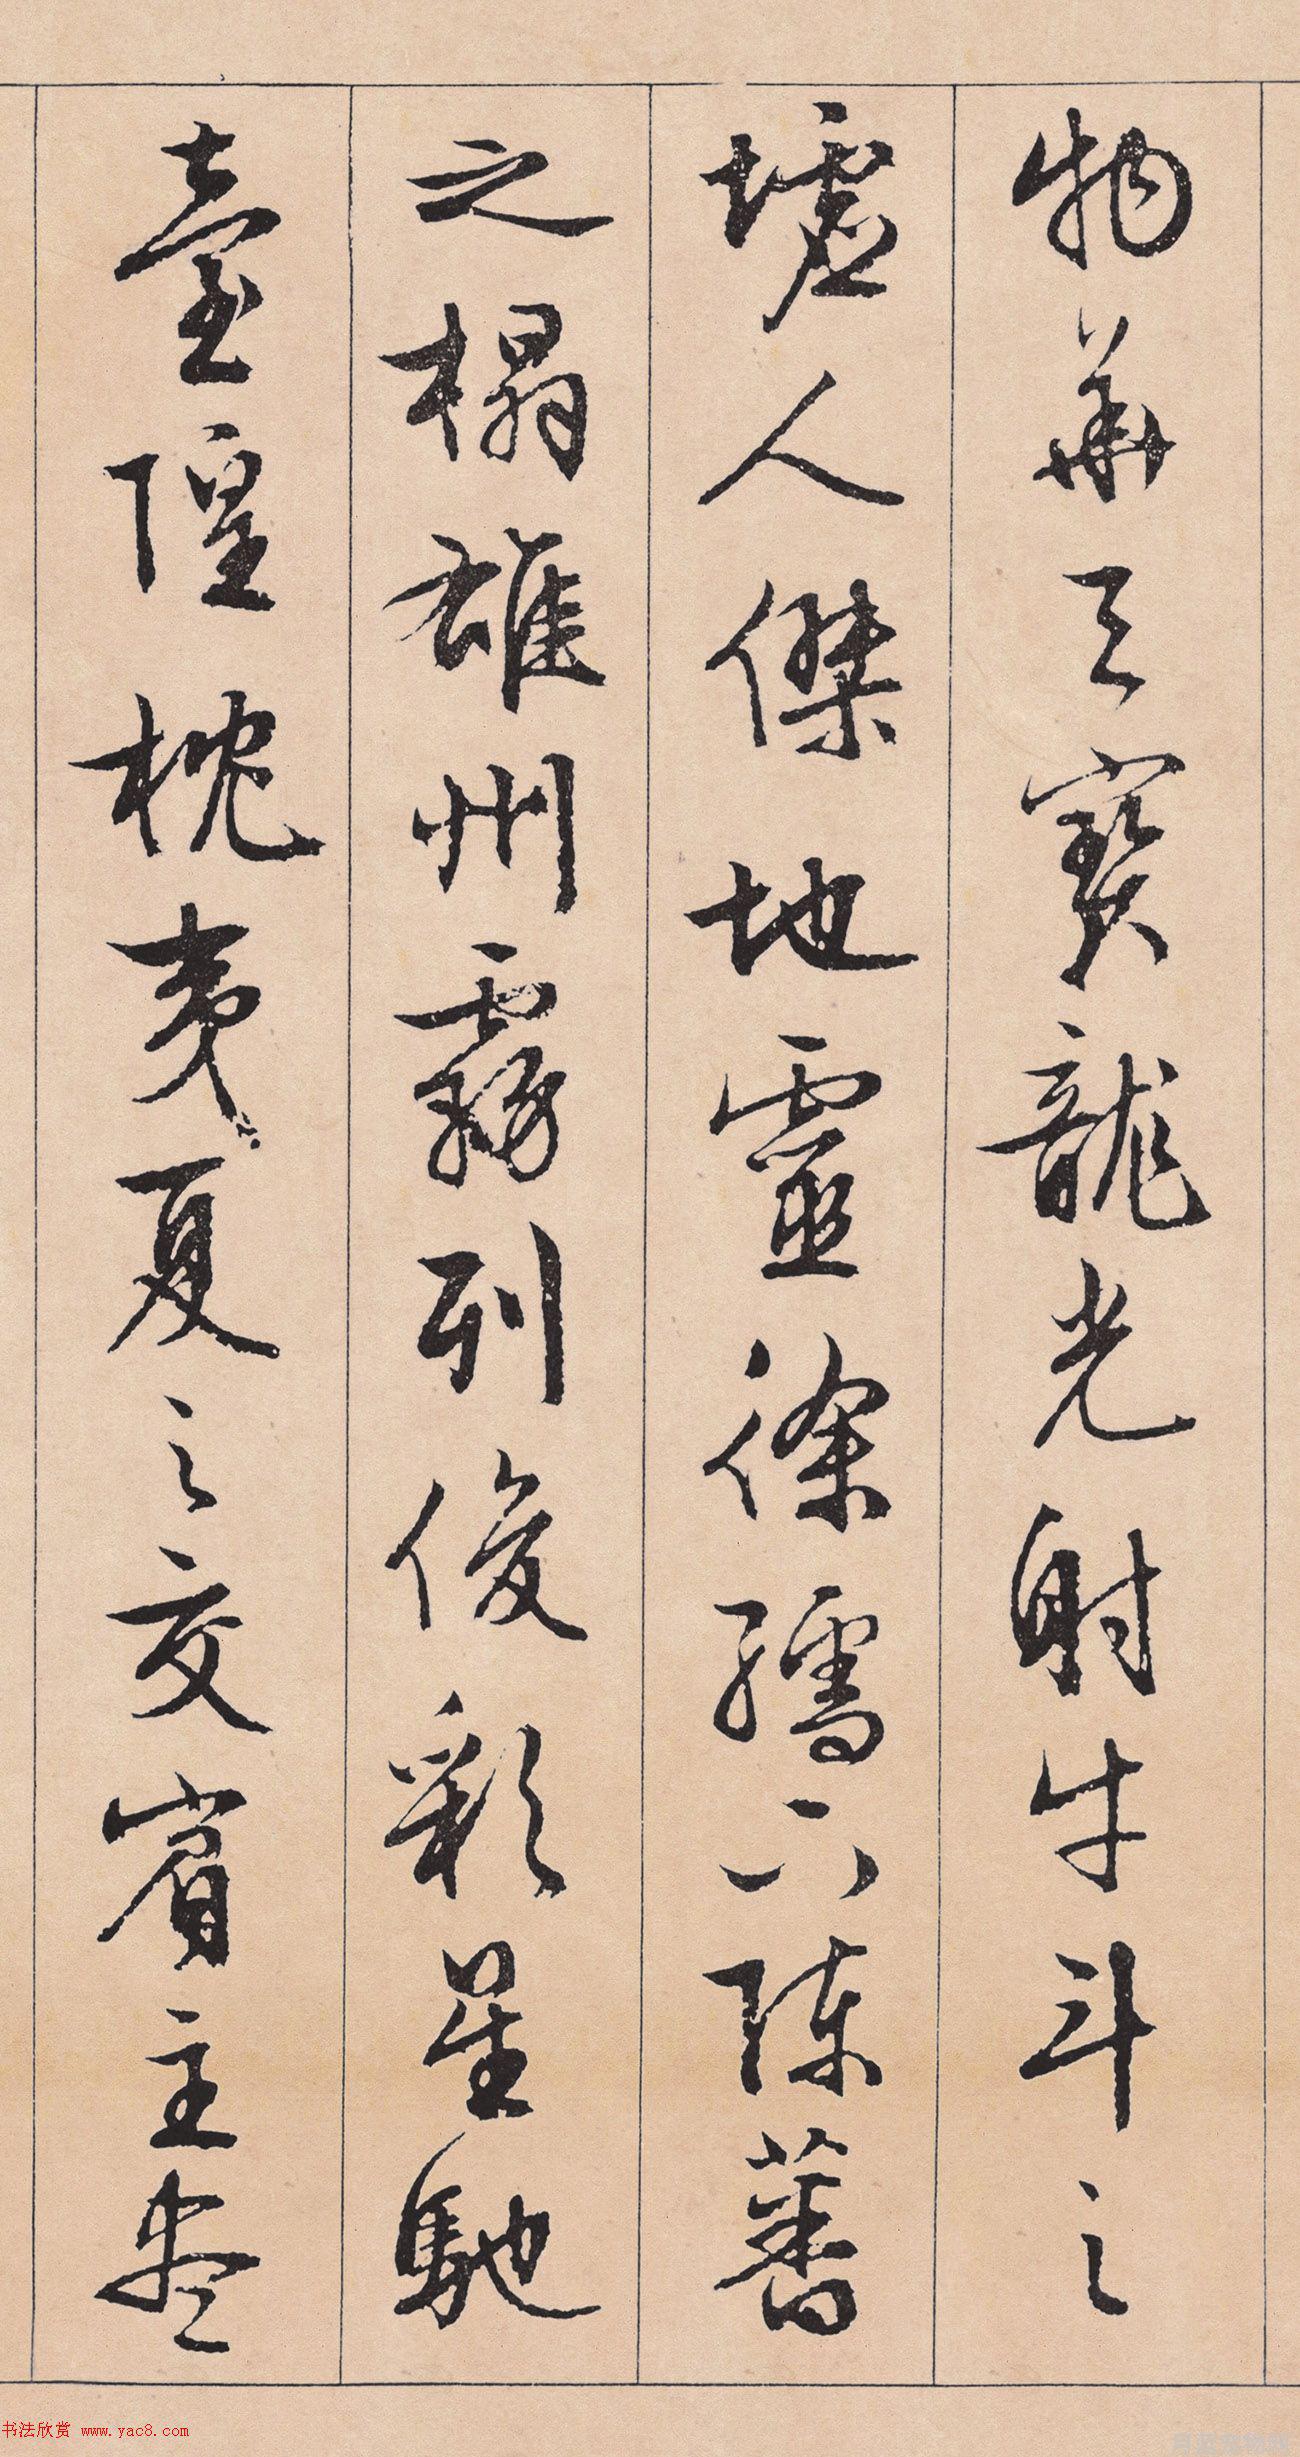 物華天寶龍光射牛斗之
墟人傑地靈徐孺下陳蕃
之榻雄州霧列俊彩星馳
臺隍枕夷夏之交賓主盡
书法欣赏 www.yac8.com